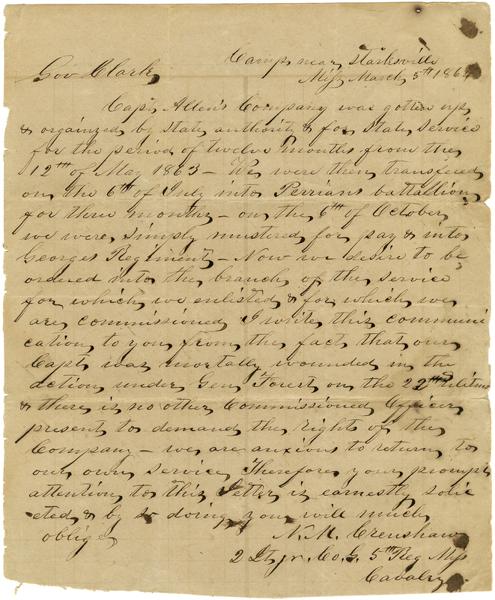 Camp near Starksville
Gov Clark, Miss March 5th 1864
Capt Allen's Company was gotten up
& organized by State authority & for State Service
for the period of twelve months from the
12th of May 1863 - We were then transfered
on the 6th of July into Perrians battallion
for three months - on the 6th of October
we were simply mustered for pay & into
Georges Regiment - Now we desire to be
ordered into the branch of the service
for which we enlisted & for which we
are commissioned I write this communi
cation to you from the fact that our
Capt was mortally wounded in the
action under Gen Forest on the 22nd
& there is no other Commissioned Officer
present to demand the rights of the
Company - we are anxious to return to
our own service Therefore your prompt
attention to this letter is earnestly solic
eted & by so doing you will much
oblige N. M. Crenshaw
2 Lt jr. Co. 5th Reg Miss
Cavalry